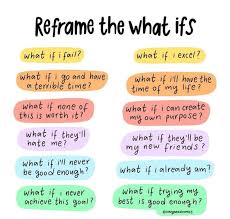 Reframe the what ifs
what if i fail?
what if i excel?
what if i go and have
a terrible time?
what if i'll have the
time of my life?
what if none of
this is worth it?
what if i can create
my own purpose?
what if they'll
hate me?
what if they'll be
my new friends?
what if i'll never
be good enough?
what if i already am?
what if i never
achieve this goal?
what if trying my
best is good enough?